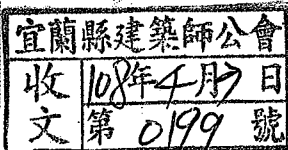 宜蘭縣建築師公會
收文
108年4月7日
第0199號